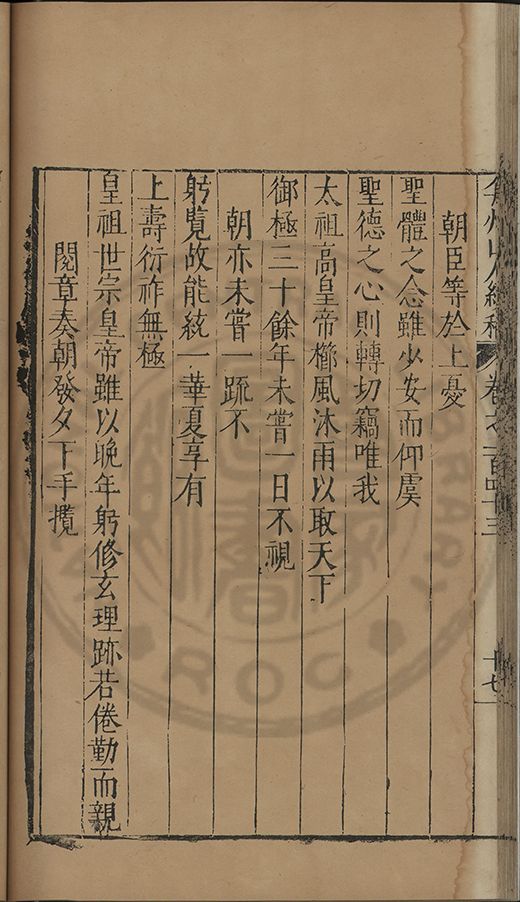 弇州山人續稿 卷之一百四十三 十七
朝臣等於上憂
聖體之念雖少安而仰虞
聖德之心則轉切竊唯我
太祖高皇帝櫛風沐雨以取天下
御極三十餘年未嘗一日不視
朝亦未嘗一䟽不
躬覽故能統一華夏享有
上壽衍祚無極
皇祖世宗皇帝雖以晚年躬修玄理跡若倦勤而親
閱章奏朝發夕下手攬